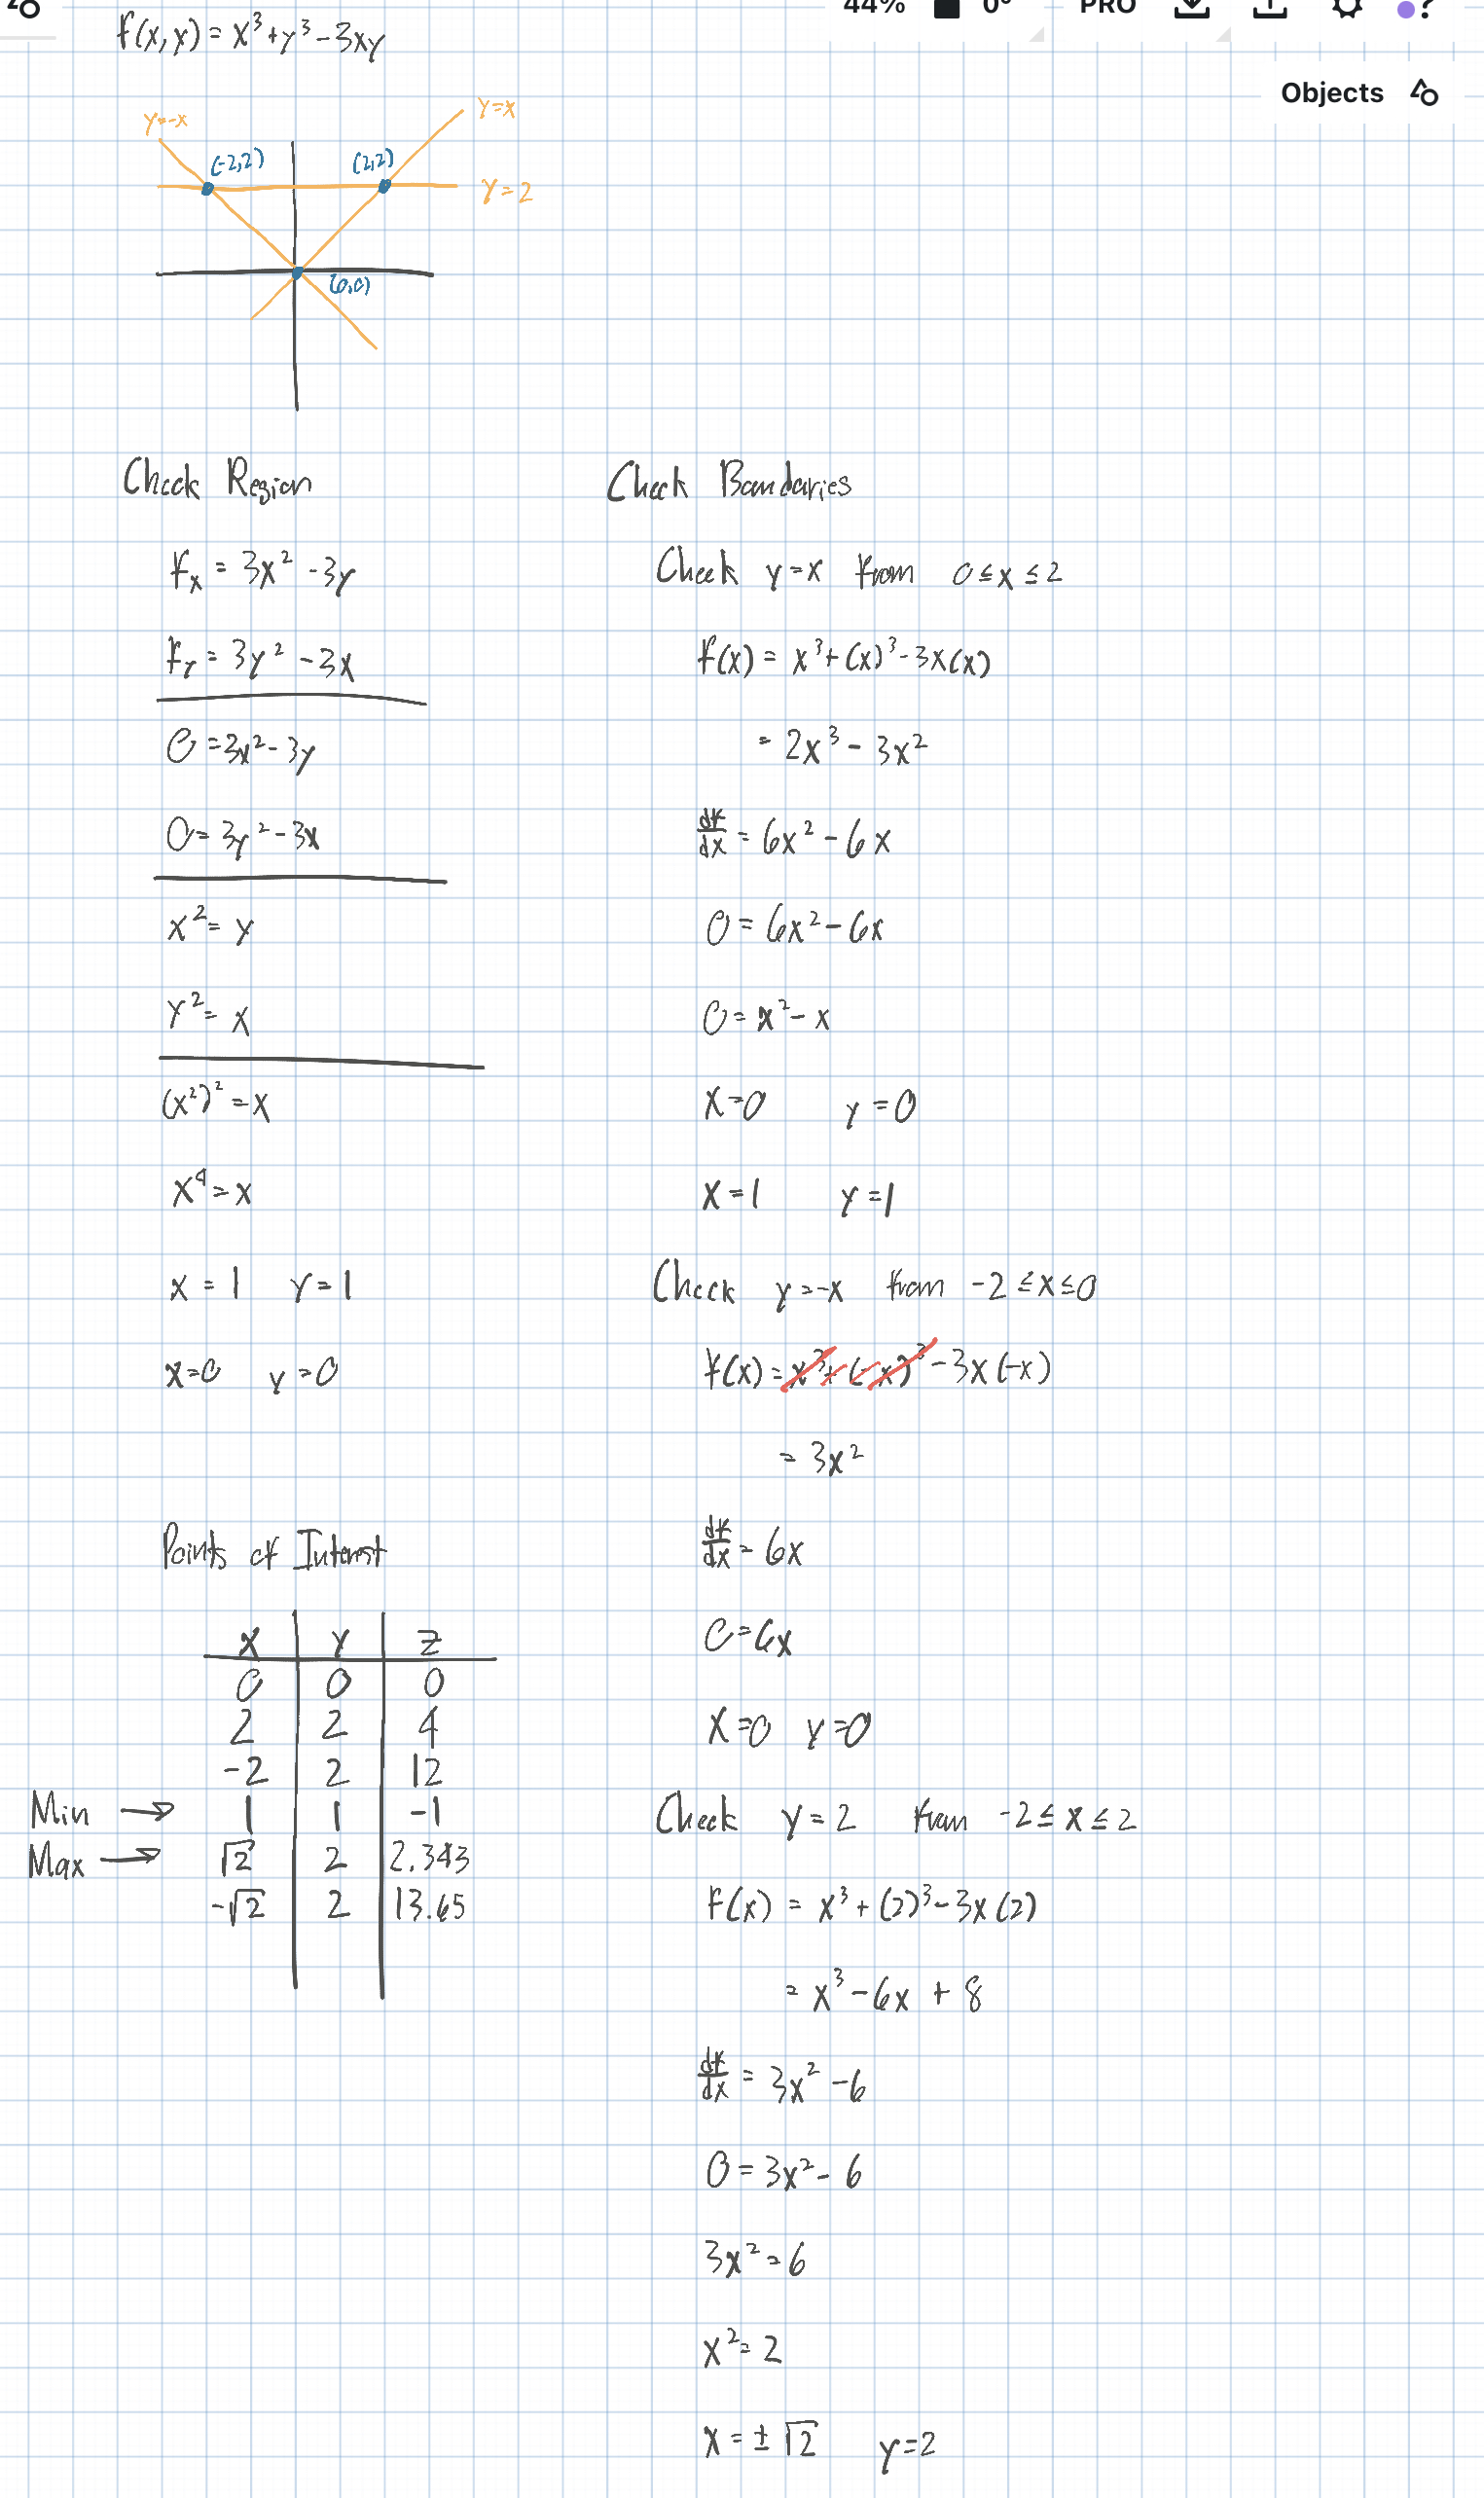 44% 0° PRO ?
f(x,y) = x³+y³-3xy
Objects
y=-x
y=x
(-2,2)
(2,2)
y=2
(0,0)
Check Region
fx = 3x² -3y
fy = 3y² -3x
0 =3x²- 3y
0= 3y²-3x
x²= y
y²= x
(x²)² =x
x⁴=x
x = 1 y=1
x=0 y=0
Points of Interest
x y z
0 0 0
2 2 4
-2 2 12
Min → 1 1 -1
Max → √2 2 2.343
-√2 2 13.65
Check Boundaries
Check y=x from 0≤x≤2
f(x) = x³+(x)³-3x(x)
= 2x³ - 3x²
df/dx = 6x² -6x
0= 6x²-6x
0= x²- x
x=0 y=0
x=1 y=1
Check y=-x from -2≤x≤0
f(x) = x³+(-x)³-3x(-x)
= 3x²
df/dx = 6x
0=6x
x=0 y=0
Check y=2 from -2≤ x ≤2
f(x) = x³+(2)³-3x(2)
= x³-6x + 8
df/dx = 3x² -6
0=3x²- 6
3x²=6
x²= 2
x= ± √2 y=2